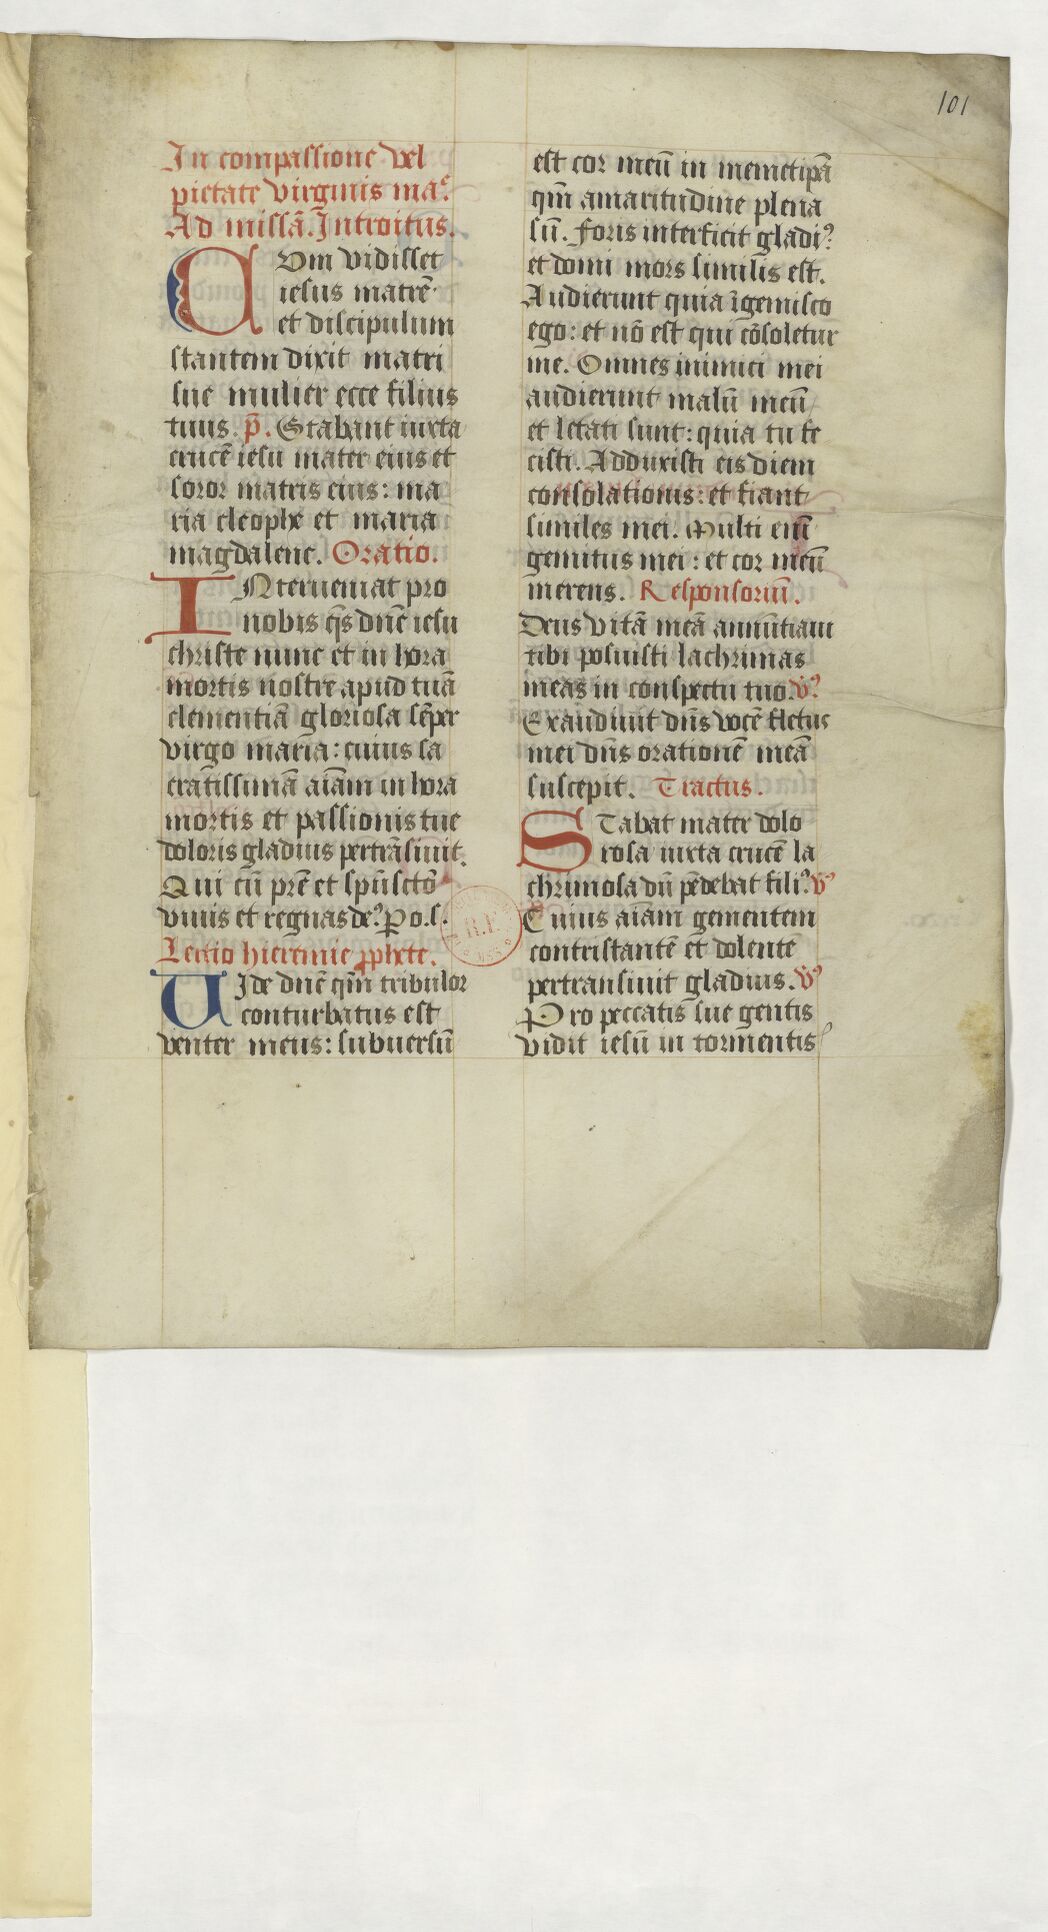 101
In compassione vel
pietate virginis ma.
Ad missã. Introitus.
CUm vidisset
iesus matrẽ
et discipulum
stantem dixit matri
sue mulier ecce filius
tuus. p̃. Stabant iuxta
crucẽ iesu mater eius et
soror matris eius: ma
ria cleophe et maria
magdalene. Oratio.
INterueniat pro
nobis q̃s dñe iesu
christe nunc et in hora
mortis nostre apud tuã
clementiã gloriosa sẽper
virgo maria: cuius sa
cratissimã aĩam in hora
mortis et passionis tue
doloris gladius pertrãsiuit.
Qui cũ prẽ et spũscto
viuis et regnas deꝰ. P o. s.
Lectio hieremie ꝓphete.
UIde dñe qm̃ tribulor
conturbatus est
venter meus: subuersũ
est cor meũ in memetipã
qm̃ amaritudine plena
sũ. Foris interficit gladiꝰ:
et domi mors similis est.
Audierunt quia ĩgemisco
ego: et nõ est qui cõsoletur
me. Omnes inimici mei
audierunt malũ meũ
et letati sunt: quia tu fe
cisti. Adduxisti eis diem
consolationis: et fiant
similes mei. Multi eiñ
gemitus mei: et cor meũ
merens. Responsoriũ.
Deus vitã meã annũtiaui
tibi posuisti lachrimas
meas in conspectu tuo. v̓.
Exaudiuit dñs vocẽ fletus
mei dñs orationẽ meã
suscepit. Tractus.
STabat mater dolo
rosa iuxta crucẽ la
chrimosa dũ pẽdebat filiꝰ. v̓
Cuius aĩam gementem
contristantẽ et dolentẽ
pertransiuit gladius. v̓
Pro peccatis sue gentis
vidit iesũ in tormentis
R.F.